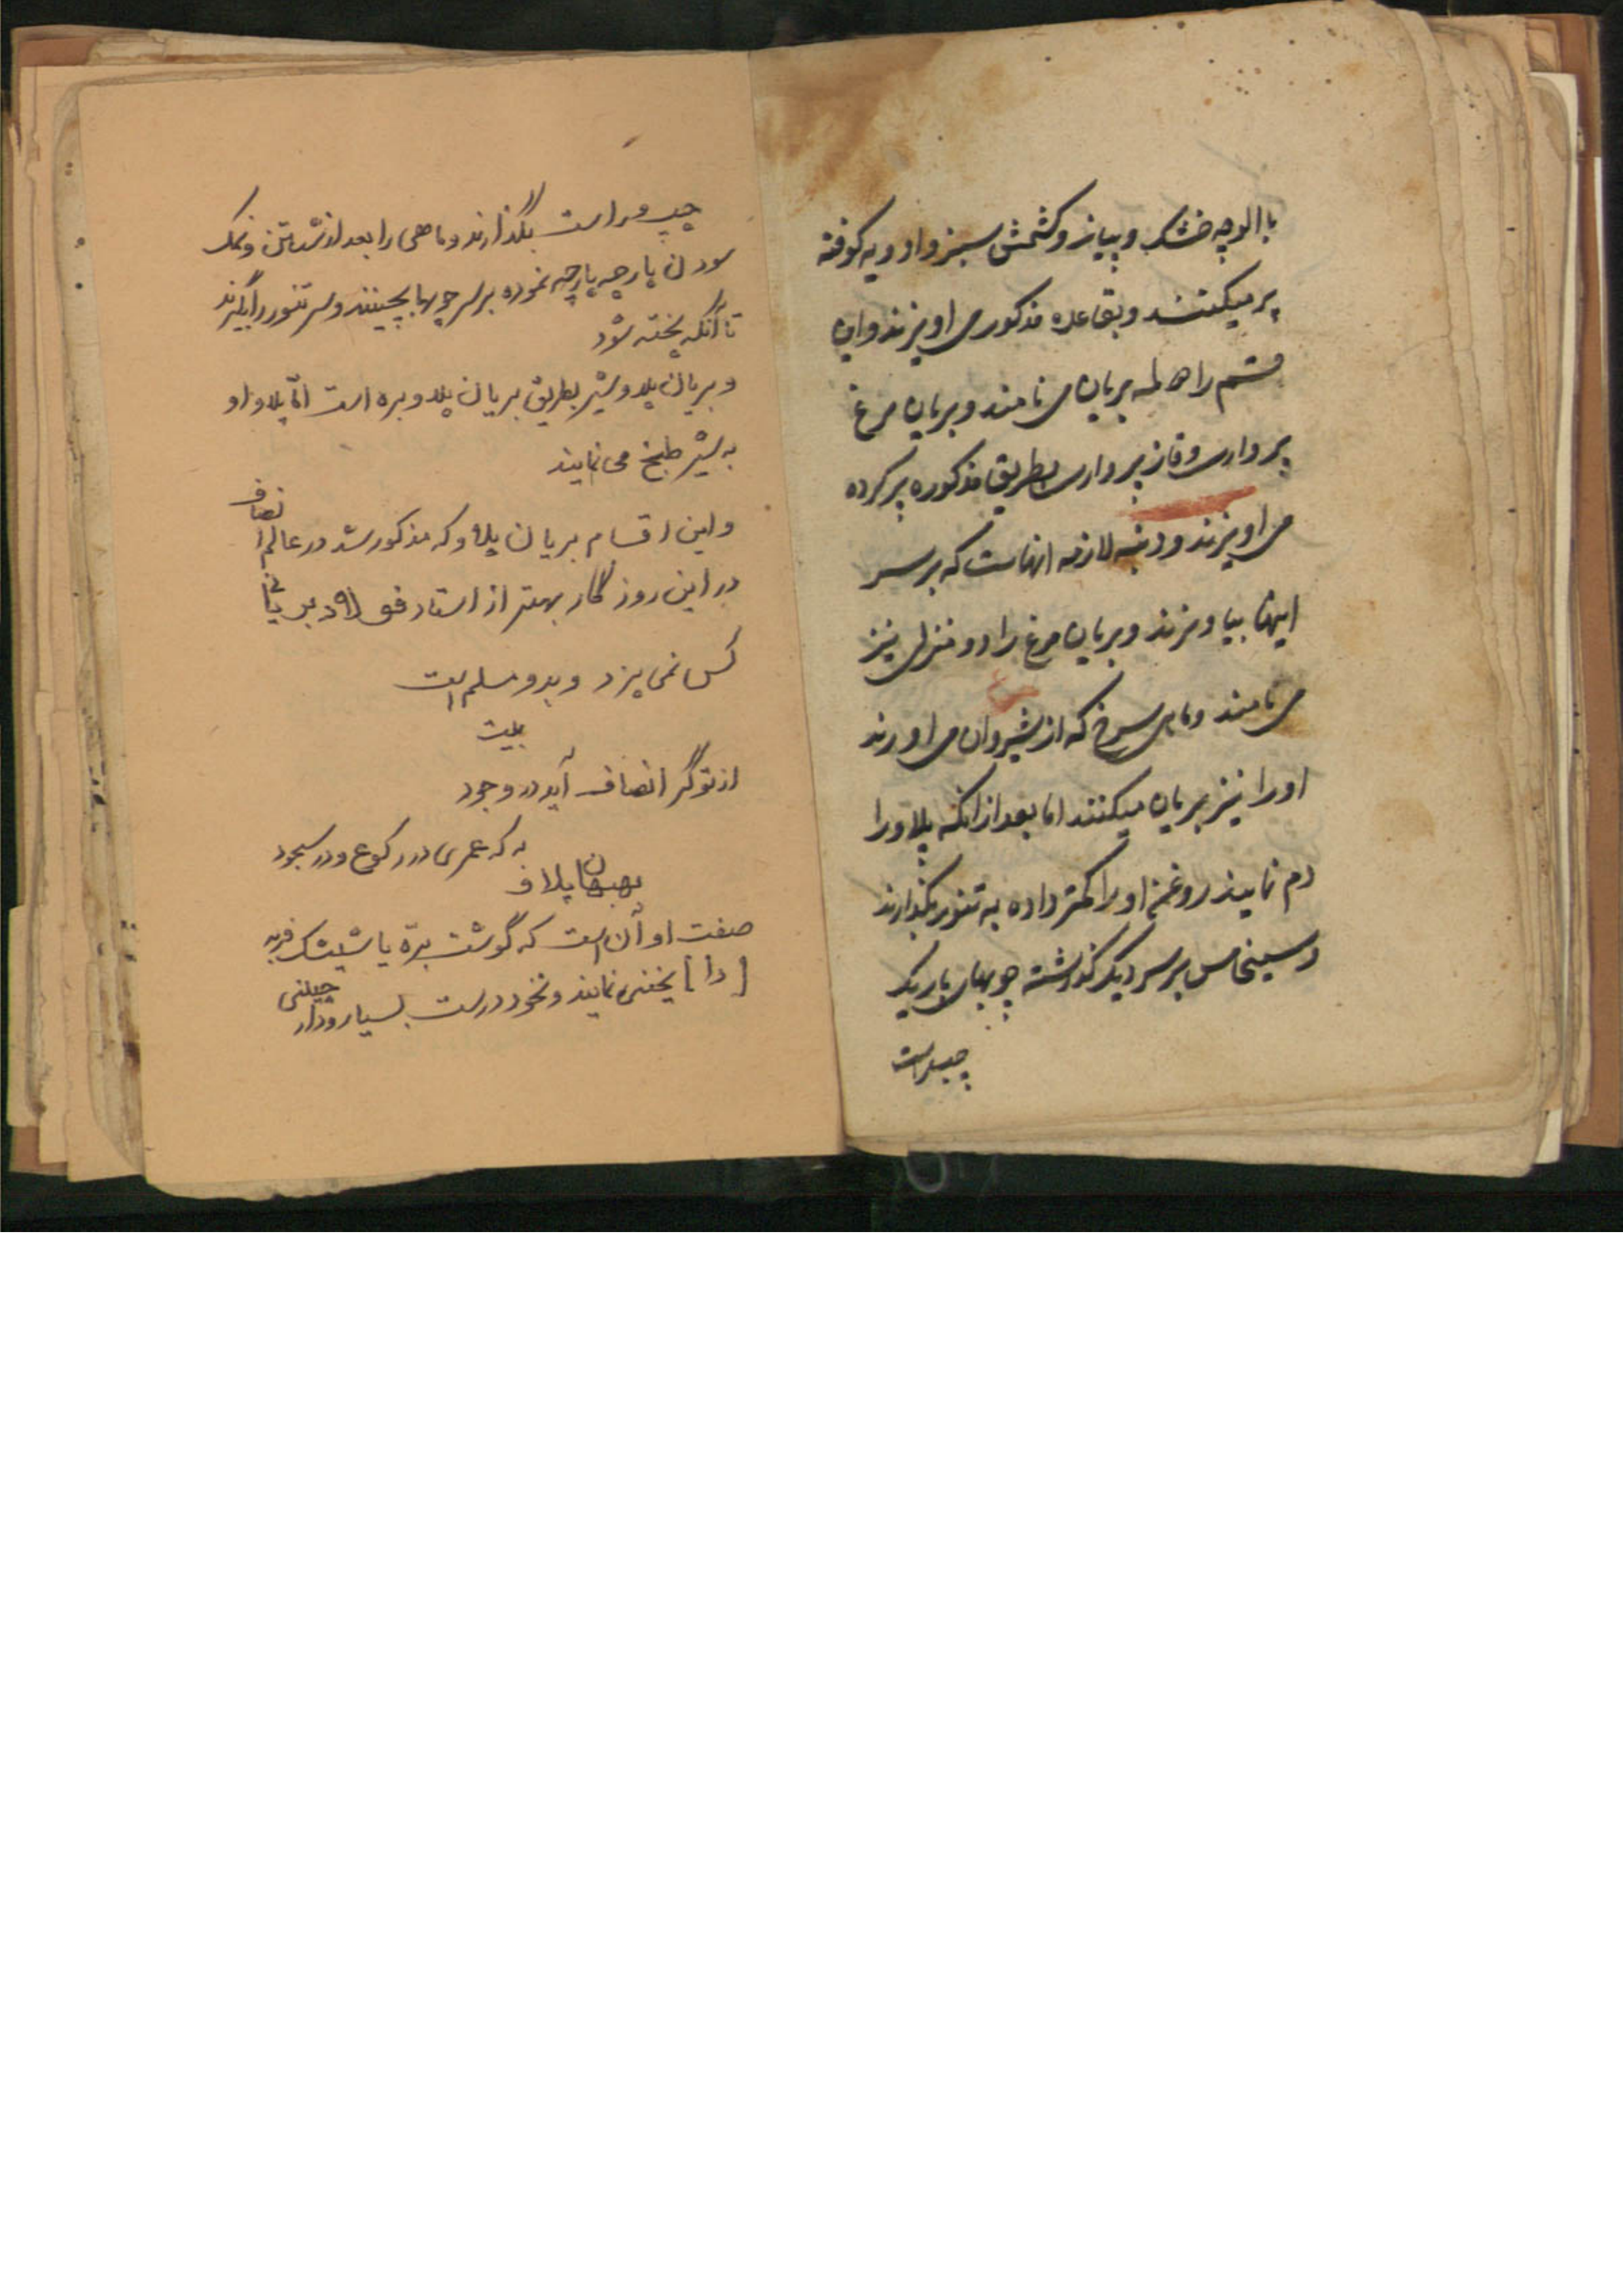 با الوچه خشک و پیاز و کشمش سبز و ادویه کوفته
پر میکنند و بقاعده مذکور می اویزند و این
قسم را حامله بریان می نامند و بریان مرغ
پرواری و قاز پرواری بطریق مذکوره پر کرده
می اویزند و دنبه لازمه انهاست که بر سر
اینها بیاویزند و بریان مرغ را دو منزل نیز
می نامند و ماهی سرخ که از شیروان می اورند
او را نیز بریان میکنند اما بعد از انکه پلاو را
دم نمایند روغن او را کمتر داده به تنور بگذارند
و سینی مس بر سر دیک گذاشته چوبهای باریک
چپ و راست
چپ و راست بگذارند و ماهی را بعد از شستن و نمک
سودن پارچه پارچه نموده بر سر چوبها بچینند و سر تنور را بگیرند
تا آنکه پخته شود
و بریان پلاو شیر بطریق بریان پلاو بره است امّا پلاو او
به شیر طبخ می نمایند
و این اقسام بریان پلاو که مذکور شد در عالم انصاف
در این روزگار بهتر از استاد
کس نمی پزد و بدو مسلم است
بیت
از تو گر انصاف آید در وجود
به که عمری در رکوع و در سجود
پلاو
صفت او آن است که گوشت برّه یا شیشک فربه
[را] یخنی نمایند و نخود درست بسیار و دارچینی